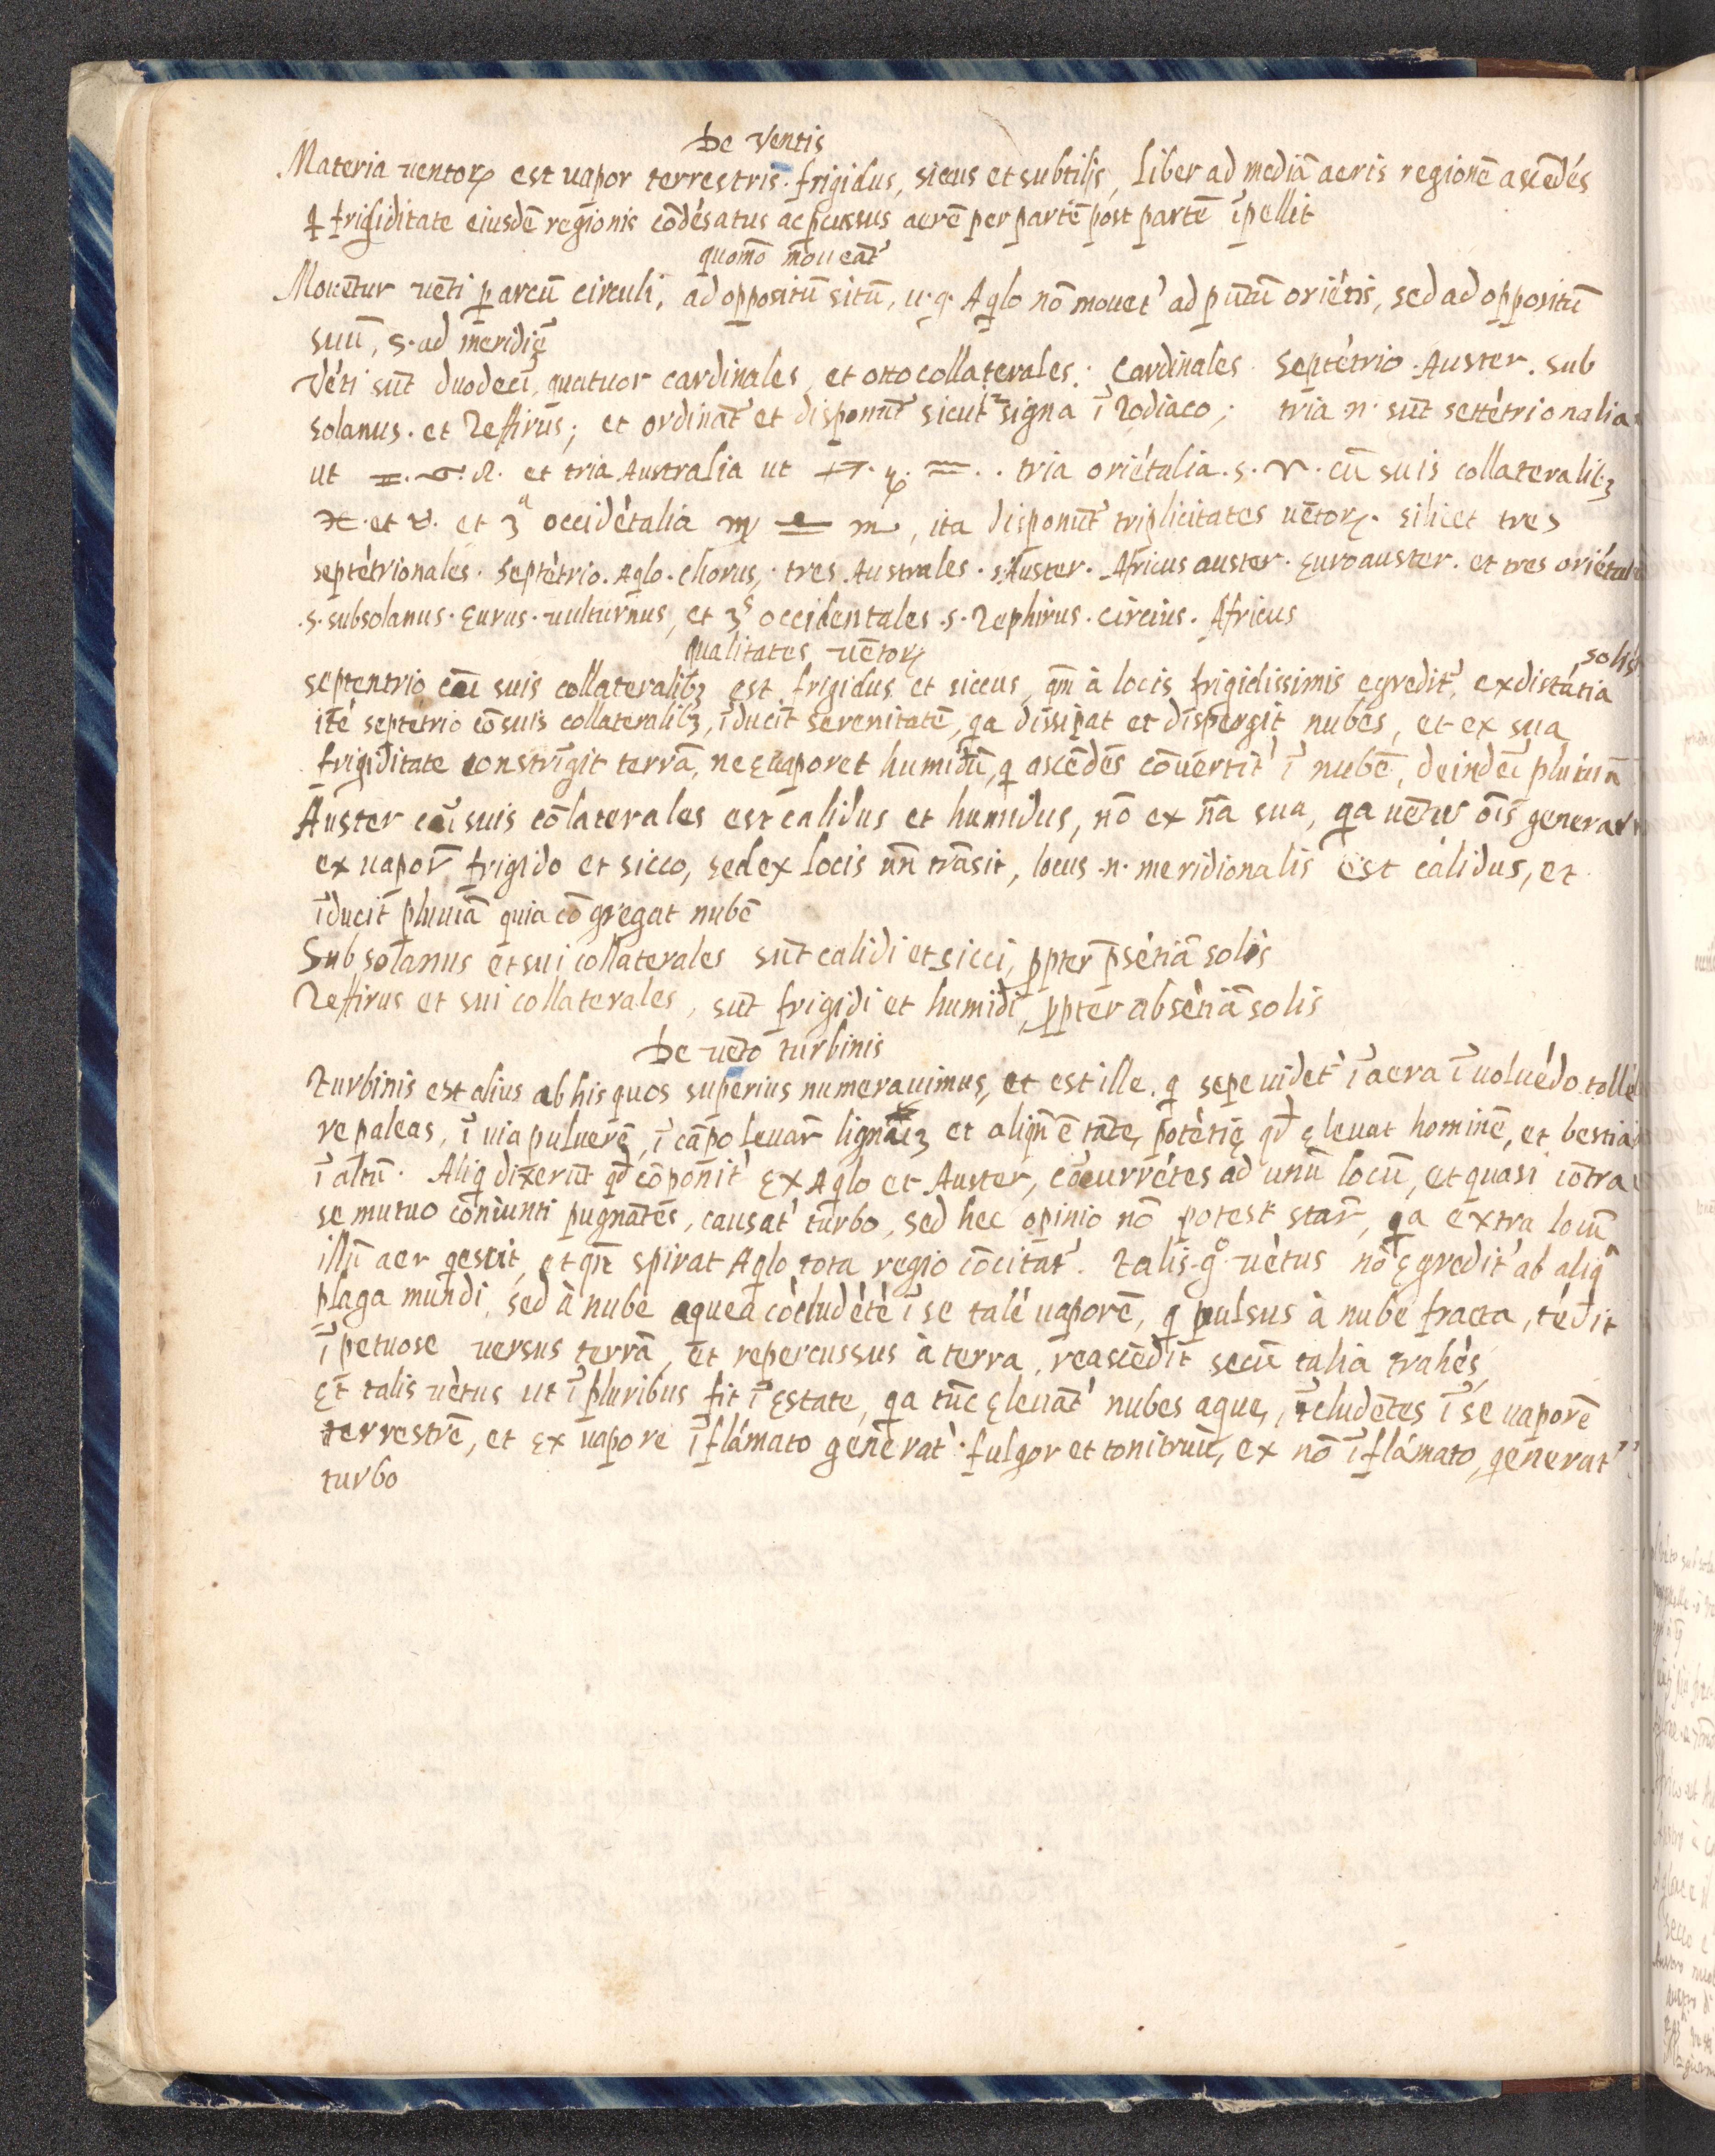 De Ventis
Materia uentoꝝ est uapor terrestris. frigidus, sicus et subtilis, liber ad mediā aeris regionē ascēdēs
ꝗ frigiditate eiusdē regionis cōdēsatus ac ꝑcussus aerē per partē post partē īpellit
quomō moueāt'
Mouētur uēti ꝑ arcū circuli, ad oppositū sitū, u.g. Aꝗlo nō mouet' ad pūtū oriētis, sed ad oppositū
suū, s. ad meridiē
Vēti sūt duodecī, quatuor cardinales, et otto collaterales. Cardinales. Septētrio. Auster. sub
solanus. et Zeffirus; et ordināt' et disponūt' sicut signa ī Zodiaco; tria .n. sūt settētrionalia
ut ♊. ♋. ♌. et tria Australia ut ♐. ♑. ♒.. tria oriētalia .s. ♈. cū suis collateralibꝫ
♓. et ♉. et 3ᵃ occidētalia ♍ ♎ ♏, ita disponūt' triplicitates uētoꝝ. silicet tres
septētrionales. Septētrio. Aꝗlo. chorus,. tres Australes. s. Auster. Africus auster. Euroauster. et tres oriētal
.s. subsolanus. Eurus. uulturnus, et 3ˢ occidentales .s. Zephirus. circius. Africus
qualitates uētoꝝ
septentrio, cū suis collateralibꝫ est frigidus et siccus, qm̄ à locis frigidissimis egredit', ex distātia solis
itē septētrio cō suis collateralibꝫ, īducit serenitatē, qa dissipat et dispergit nubes, et ex sua
frigiditate constrīgit terrā, ne euaporet humidū, ꝗ ascēdēs cōuertit' ī nubē, deinde ī pluiuā
Auster cū suis cōlaterales est calidus et humidus, nō ex nā sua, qa uētus oīs generat
ex uapor̄ frigido et sicco, sed ex locis un̄ trāsit, locus .n. meridionalis est calidus, et
īducit pluuiā quia cōgregat nubē
Subsolanus et sui collaterales sūt calidi et sicci, ꝓpter p̄sētiā solis
Zeffirus et sui collaterales, sūt frigidi et humidi, ꝓpter absētiā solis
De uēto turbinis
Turbinis est alius ab his quos superius numerauimus, et est ille. ꝗ sepe uidet' ī aera ī uoluēdo tolle
re paleas, ī uia puluerē, ī cāpo leuar̄ et aliqn̄ ē tāte potētie qd̄ eleuat hominē, et bestia
ī altū. Aliꝗ dixerūt qd̄ cōponit' ex Aꝗlo et Auster, cōcurrētes ad unū locū, et quasi cōtra
se mutuo cōniunti pugnātes, causat' turbo, sed hec opinio nō potest star̄, qa extra locū
illū aer ꝗescit, et qn̄ spirat Aꝗlo tota regio cōcitat'. Talis .g°. uētus nō egredit' ab aliq̄
plaga mundi, sed à nube aquea cōcludētē ī se talē uaporē, ꝗ pulsus à nube fracta, tēdit
īpetuose uersus terrā, et repercussus à terra, reascēdit secū talia trahēs,
Et talis uētus ut ī pluribus fit ī estate, qa tūc eleuāt' nubes aque, īcludētes ī se uaporē
terrestrē, et ex uapore īflāmato generat' fulgor et tonitruū, ex nō īflāmato, generat'
turbo